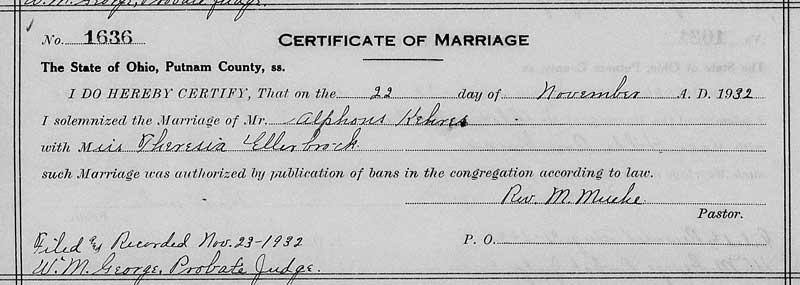 W. M. George, Probate Judge.
No. 1636 CERTIFICATE OF MARRIAGE
The State of Ohio, Putnam County, ss.
I DO HEREBY CERTIFY, That on the 22 day of November A. D. 1932
I solemnized the Marriage of Mr. Alphons Kehres
with Miss Theresia Ellerbrock
such Marriage was authorized by publication of bans in the congregation according to law.
Rev. M. Mueke
Pastor.
Filed & Recorded Nov. 23-1932 P. O.
W. M. George, Probate Judge.